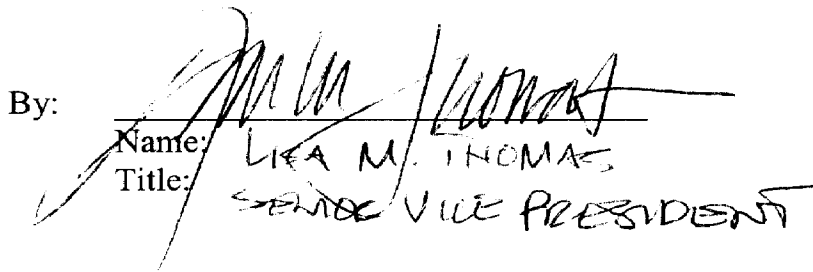 By:
Name: LISA M. THOMAS
Title: SENIOR VICE PRESIDENT